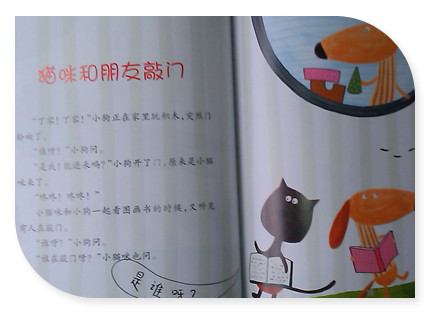 猫咪和朋友敲门
“丁零！丁零！”小狗正在家里玩积木，突然门
铃响了。
“谁呀？”小狗问。
“是我！能进来吗？”小狗开了门，原来是小猫
咪来了。
“咚咚！咚咚！”
小猫咪和小狗一起看图画书的时候，又听见
有人在敲门。
“谁呀？”小狗问。
“谁在敲门呀？”小猫咪也问。
是谁呀？